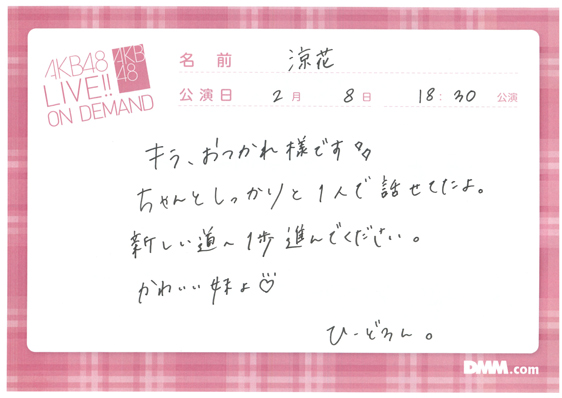 AKB48
LIVE!!
ON DEMAND
AKB
48
名 前 涼花
公演日 2月 8日 18:30 公演
キラ、おつかれ様です
ちゃんとしっかりと1人で話せてたよ。
新しい道へ1歩進んでください。
かわいい妹よ♡
ひーどろん。
DMM.com